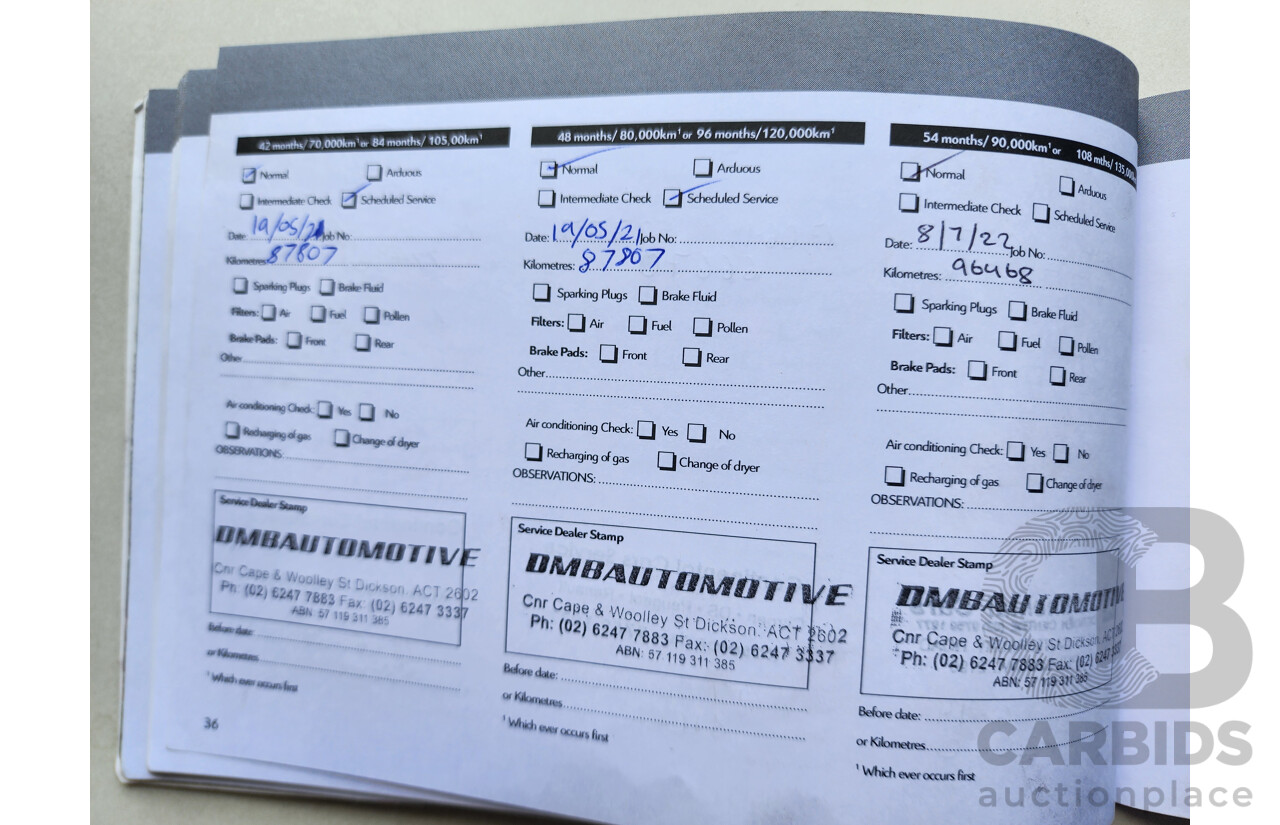 42 months/ 70,000km¹ or 84 months/ 105,00km¹
Normal Arduous
Intermediate Check Scheduled Service
Date: 19/05/21 Job No:
Kilometres: 87807
Sparking Plugs Brake Fluid
Filters: Air Fuel Pollen
Brake Pads: Front Rear
Other
Air conditioning Check: Yes No
Recharging of gas Change of dryer
OBSERVATIONS:
Service Dealer Stamp
DMBAUTOMOTIVE
Cnr Cape & Woolley St Dickson. ACT 2602
Ph: (02) 6247 7883 Fax: (02) 6247 3337
ABN: 57 119 311 385
Before date:
or Kilometres
¹ Which ever occurs first
36
48 months/ 80,000km¹ or 96 months/120,000km¹
Normal Arduous
Intermediate Check Scheduled Service
Date: 19/05/21 Job No:
Kilometres: 87807
Sparking Plugs Brake Fluid
Filters: Air Fuel Pollen
Brake Pads: Front Rear
Other
Air conditioning Check: Yes No
Recharging of gas Change of dryer
OBSERVATIONS:
Service Dealer Stamp
DMBAUTOMOTIVE
Cnr Cape & Woolley St Dickson. ACT 2602
Ph: (02) 6247 7883 Fax: (02) 6247 3337
ABN: 57 119 311 385
Before date:
or Kilometres
¹ Which ever occurs first
54 months/ 90,000km¹ or 108 mths/ 135,000
Normal Arduous
Intermediate Check Scheduled Service
Date: 8/7/22 Job No:
Kilometres: 96468
Sparking Plugs Brake Fluid
Filters: Air Fuel Pollen
Brake Pads: Front Rear
Other
Air conditioning Check: Yes No
Recharging of gas Change of dryer
OBSERVATIONS:
Service Dealer Stamp
DMBAUTOMOTIV
Cnr Cape & Woolley St Dickson, ACT
Ph: (02) 6247 7883 Fax: (02) 6247
ABN: 57 119 311 385
Before date:
or Kilometres
¹ Which ever occurs first
CARBIDS
auctionplace